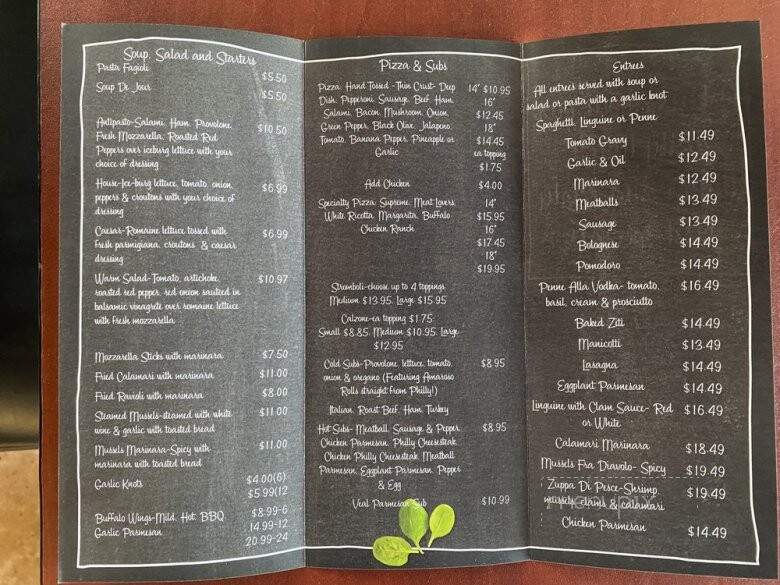 Soup, Salad and Starters
Pasta Fagioli $5.50
Soup De Jour $5.50
Antipasto-Salami, Ham, Provolone,
Fresh Mozzarella, Roasted Red $10.50
Peppers over iceburg lettuce with your
choice of dressing
House-Ice-burg lettuce, tomato, onion, $6.99
peppers & croutons with your choice of
dressing
Caesar-Romaine lettuce tossed with $6.99
fresh parmigiana, croutons & caesar
dressing
Warm Salad-Tomato, artichoke, $10.97
roasted red pepper, red onion sauteed in
balsamic vinagrete over romaine lettuce
with fresh mozzarella
Mozzarella Sticks with marinara $7.50
Fried Calamari with marinara $11.00
Fried Ravioli with marinara $8.00
Steamed Mussels-steamed with white $11.00
wine & garlic with toasted bread
Mussels Marinara-Spicy with $11.00
marinara with toasted bread
Garlic Knots $4.00(6)
$5.99(12
Buffalo Wings-Mild, Hot, BBQ, $8.99-6
Garlic Parmesan 14.99-12
20.99-24
Pizza & Subs
Pizza, Hand Tossed -Thin Crust- Deep 14" $10.95
Dish, Pepperoni, Sausage, Beef, Ham, 16"
Salami, Bacon, Mushroom, Onion, $12.45
Green Pepper, Black Olive, Jalapeno, 18"
Tomato, Banana Pepper, Pineapple or $14.45
Garlic ea topping
$1.75
Add Chicken $4.00
Specialty Pizza: Supreme, Meat Lovers, 14"
White Ricotta, Margarita, Buffalo $15.95
Chicken Ranch 16"
$17.45
18"
$19.95
Stromboli-choose up to 4 toppings
Medium $13.95, Large $15.95
Calzone-ea topping $1.75
Small $8.85, Medium $10.95, Large
$12.95
Cold Subs-Provolone, lettuce, tomato, $8.95
onion & oregano (Featuring Amaroso
Rolls straight from Philly!)
Italian, Roast Beef, Ham, Turkey
Hot Subs- Meatball, Sausage & Pepper, $8.95
Chicken Parmesan, Philly Cheesesteak,
Chicken Philly Cheesesteak, Meatball
Parmesan, Eggplant Parmesan, Pepper
& Egg
Veal Parmesan Sub $10.99
Entrees
All entrees served with soup or
salad or pasta with a garlic knot
Spaghetti, Linguine or Penne
Tomato Gravy $11.49
Garlic & Oil $12.49
Marinara $12.49
Meatballs $13.49
Sausage $13.49
Bolognese $14.49
Pomodoro $14.49
Penne Alla Vodka- tomato, $16.49
basil, cream & prosciutto
Baked Ziti $14.49
Manicotti $13.49
Lasagna $14.49
Eggplant Parmesan $14.49
Linguine with Clam Sauce- Red $16.49
or White
Calamari Marinara $18.49
Mussels Fra Diavolo- Spicy $19.49
Zuppa Di Pesce-Shrimp, $19.49
mussels, clams & calamari
Chicken Parmesan $14.49